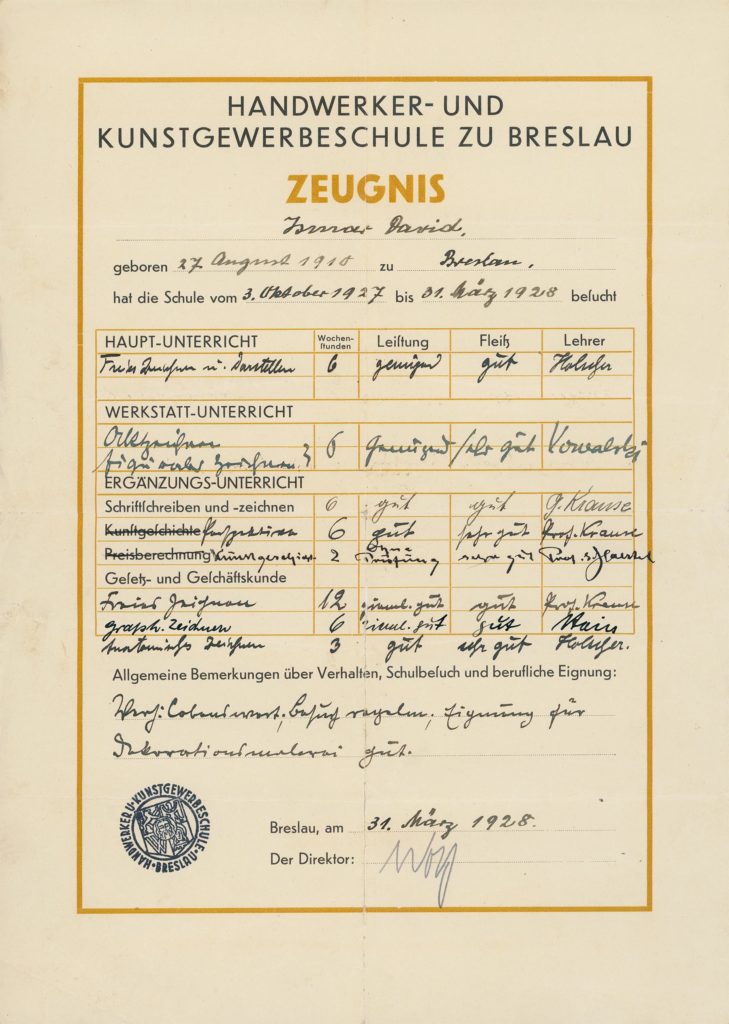 HANDWERKER- UND
KUNSTGEWERBESCHULE ZU BRESLAU
ZEUGNIS
Ismar David,
geboren 27 August 1910 zu Breslau,
hat die Schule vom 3. Oktober 1927 bis 31. März 1928 beſucht
HAUPT-UNTERRICHT Wochen-ſtunden Leiſtung Fleiß Lehrer
Freies Zeichnen u. Darstellen 6 genügend gut Holscher
WERKSTATT-UNTERRICHT
Aktzeichnen
figürliches Zeichnen } 6 Genügend sehr gut Kowalski
ERGÄNZUNGS-UNTERRICHT
Schriftſchreiben und -zeichnen 6 gut gut G. Krause
Kunſtgeſchichte Perspektive 6 gut sehr gut Prof. Krause
Preisberechnung Kunstgeschichte 2 Ohne Prüfung sehr gut Prof.
Geſetz- und Geſchäftskunde
Freies Zeichnen 12 zieml. gut gut Prof. Krause
graph. Zeichnen 6 zieml. gut gut
Anatomisches Zeichnen 3 gut sehr gut Holscher.
Allgemeine Bemerkungen über Verhalten, Schulbeſuch und berufliche Eignung:
Verh: Lobenswert; Besuch regelm; Eignung für
Dekorationsmalerei gut.
HANDWERKER U. KUNSTGEWERBESCHULE BRESLAU
Breslau, am 31. März 1928.
Der Direktor: